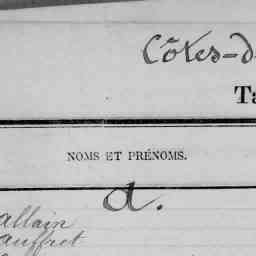 Côtes-d
Ta
NOMS ET PRÉNOMS.
a.
allain
auffret